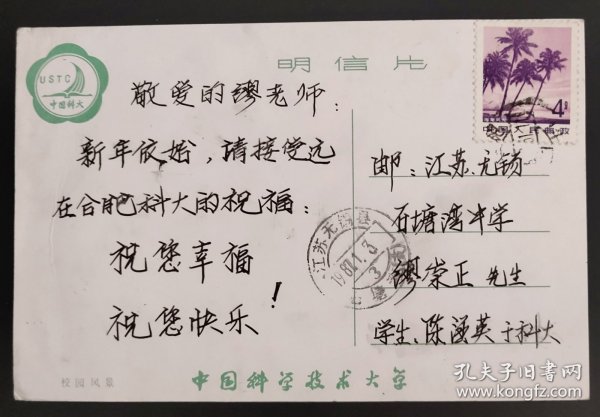 USTC
中国科大
明信片
4分
中国人民邮政
敬爱的缪老师：
新年伊始，请接受远
在合肥科大的祝福：
祝您幸福
祝您快乐！
邮：江苏.无锡
石塘湾中学
缪崇正 先生
学生、陈
英于科大
江苏无锡县
1987.1.3
校园风景
中国科学技术大学
孔夫子旧书网
www.kongfz.com